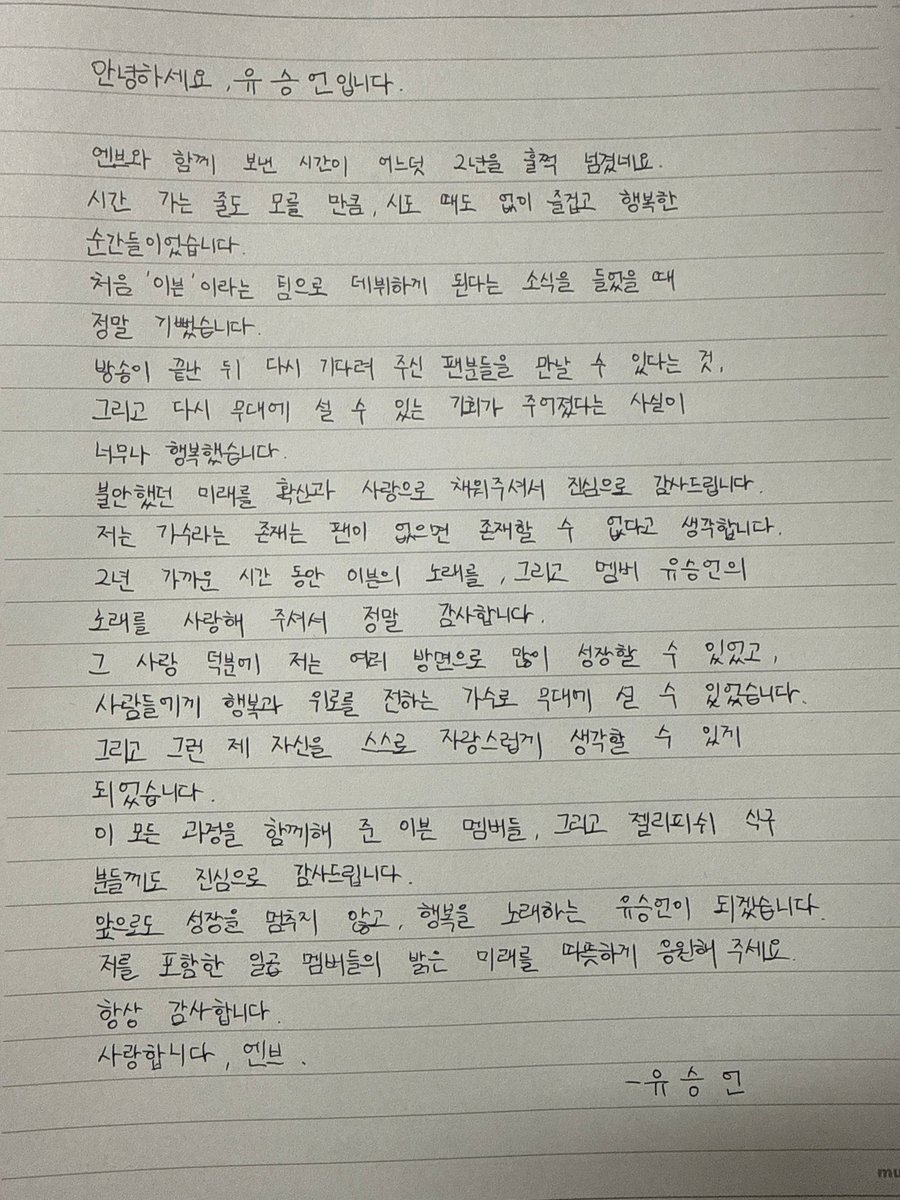 안녕하세요, 유승언입니다.
엔브와 함께 보낸 시간이 어느덧 2년을 훌쩍 넘겼네요.
시간 가는 줄도 모를 만큼, 시도 때도 없이 즐겁고 행복한
순간들이었습니다.
처음 '이븐'이라는 팀으로 데뷔하게 된다는 소식을 들었을 때
정말 기뻤습니다.
방송이 끝난 뒤 다시 기다려 주신 팬분들을 만날 수 있다는 것,
그리고 다시 무대에 설 수 있는 기회가 주어졌다는 사실이
너무나 행복했습니다.
불안했던 미래를 확신과 사랑으로 채워주셔서 진심으로 감사드립니다.
저는 가수라는 존재는 팬이 없으면 존재할 수 없다고 생각합니다.
2년 가까운 시간 동안 이븐의 노래를, 그리고 멤버 유승언의
노래를 사랑해 주셔서 정말 감사합니다.
그 사랑 덕분에 저는 여러 방면으로 많이 성장할 수 있었고,
사람들에게 행복과 위로를 전하는 가수로 무대에 설 수 있었습니다.
그리고 그런 제 자신을 스스로 자랑스럽게 생각할 수 있게
되었습니다.
이 모든 과정을 함께해 준 이븐 멤버들, 그리고 젤리피쉬 식구
분들께도 진심으로 감사드립니다.
앞으로도 성장을 멈추지 않고, 행복을 노래하는 유승언이 되겠습니다.
저를 포함한 일곱 멤버들의 밝은 미래를 따뜻하게 응원해 주세요.
항상 감사합니다.
사랑합니다, 엔브.
-유승언